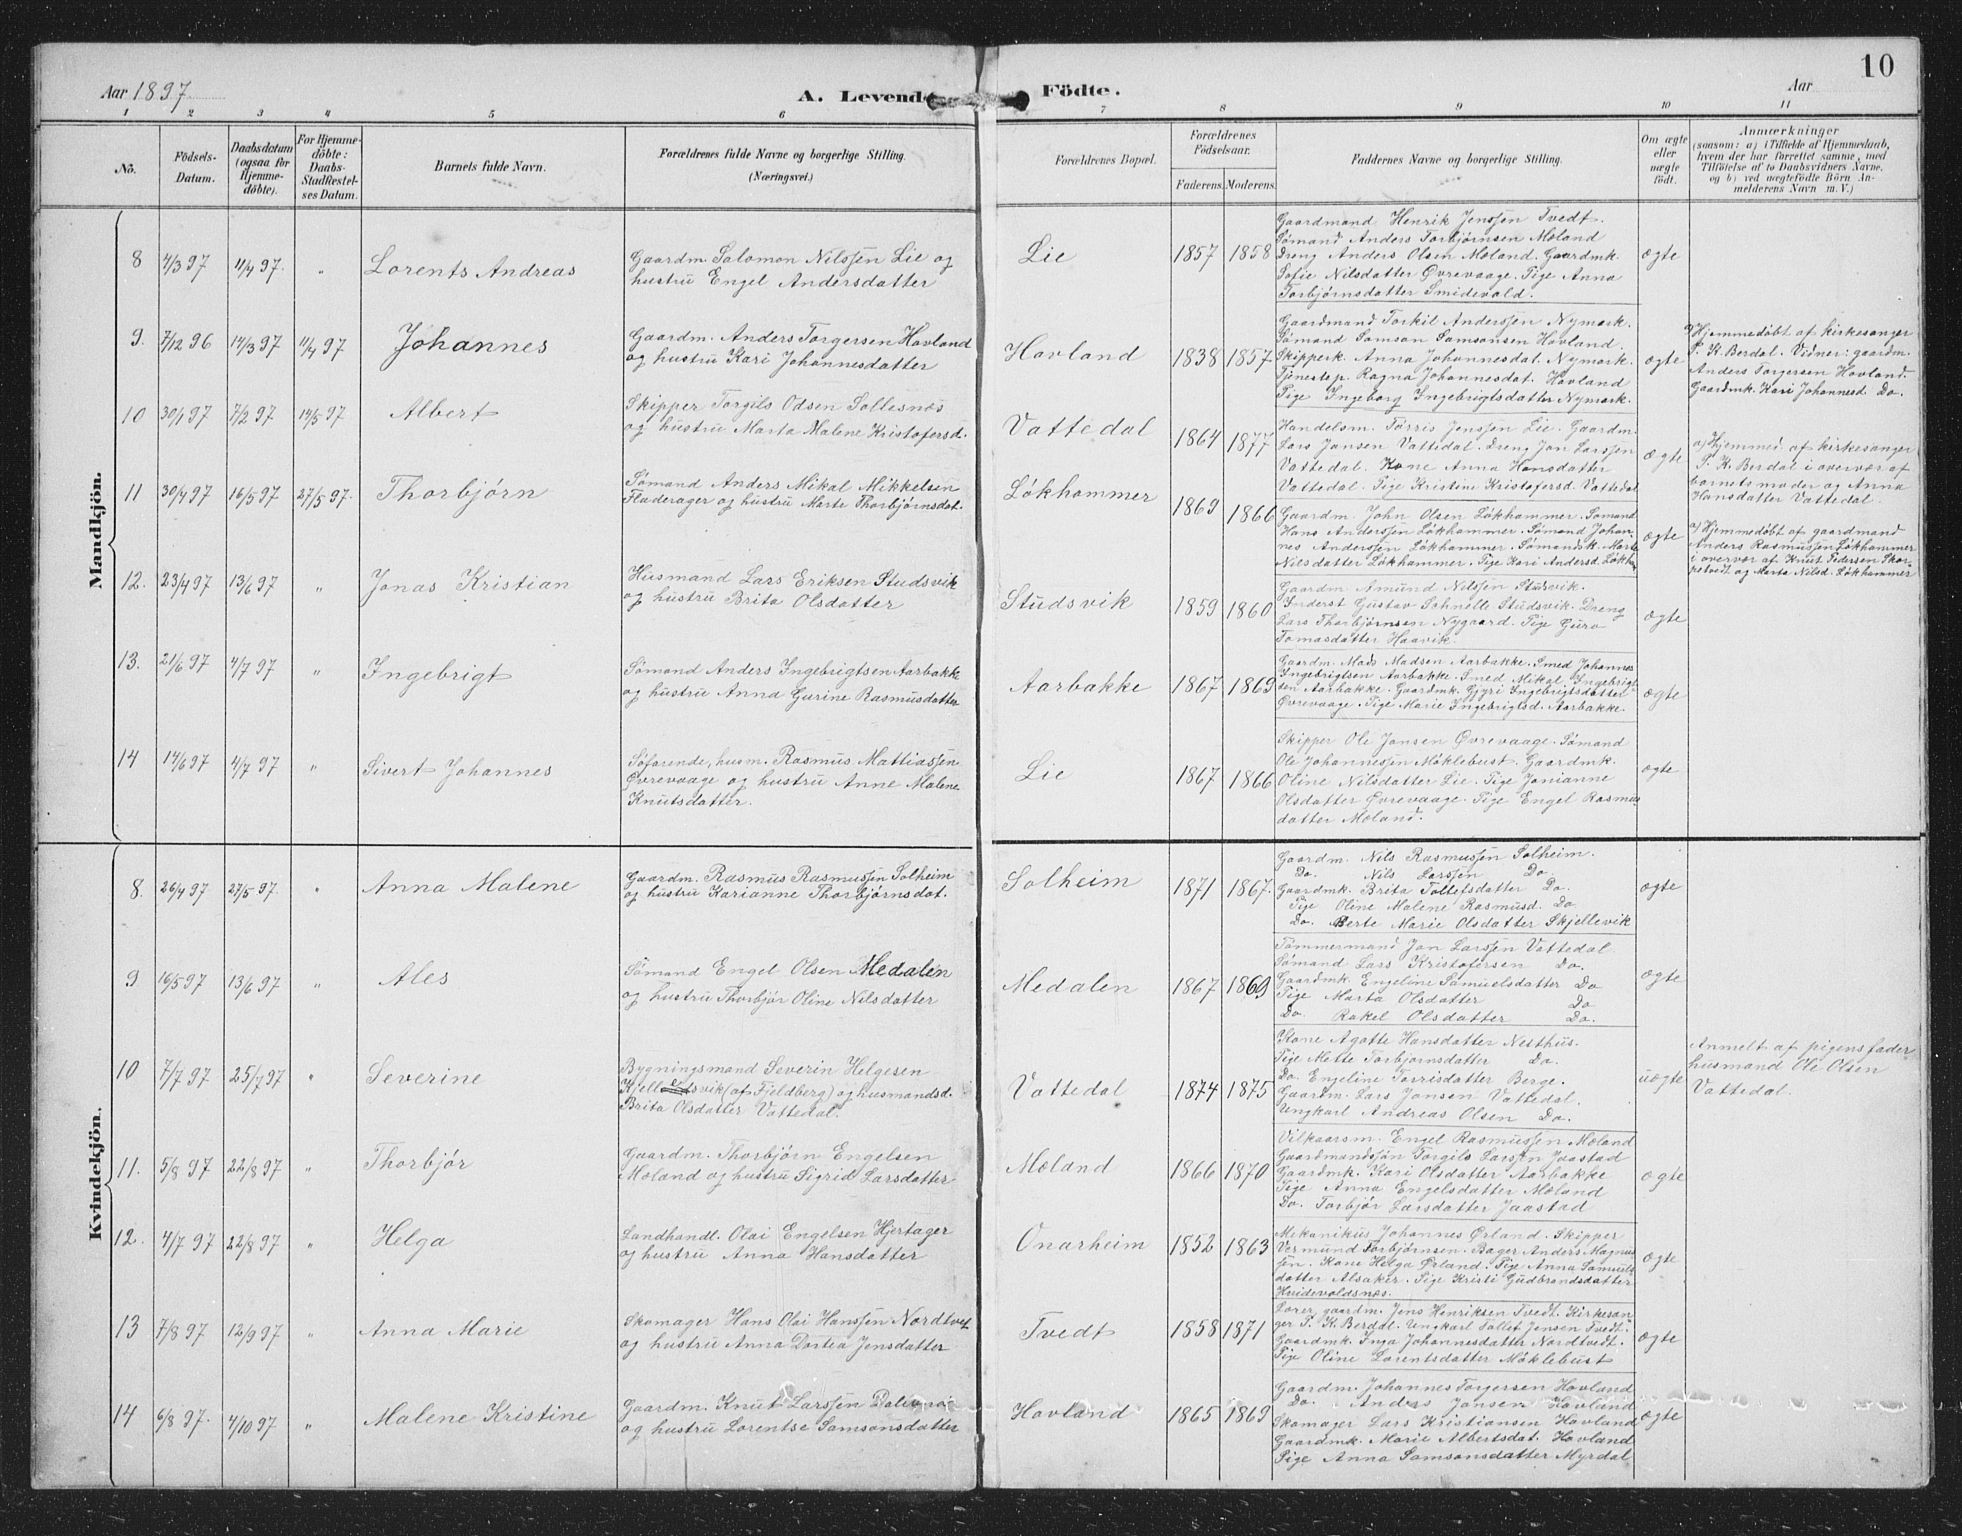 Aar 1897
A. Levende Födte.
Aar
10
1 2 3 4 5 6 7 8 9 10 11
No.
Födsels-
Datum.
Daabsdatum
(ogsaa for
Hjemme-
döbte).
For Hjemme-
döbte:
Daabs-
Stadfæstel-
ses Datum.
Barnets fulde Navn.
Forældrenes fulde Navne og borgerlige Stilling.
(Næringsvei.)
Forældrenes Bopæl.
Forældrenes
Födselsaar.
Faderens. Moderens.
Faddernes Navne og borgerlige Stilling.
Om ægte
eller
uægte
födt.
Anmærkninger
(saasom: a) i Tilfælde af Hjemmedaab,
hvem der har forrettet samme, med
Tilföielse af to Daabsvidners Navne,
og b) ved uægtefödte Börn An-
melderens Navn m. V.)
Mandkjön.
8 4/3 97 11/4 97. " Lorents Andreas
Gaardm. Salomon Nilssen Lie og
hustru Engel Andersdatter
Lie 1857 1858
Gaardmand Henrik Jenssen Tvedt.
Sømand Anders Torbjørnsen Mæland
Dreng Anders Olsen Mæland. Gaardmk.
Sofie Nilsdatter Øvrevaage. Pige Anna
Torbjørnsdatter Smidevold.
ægte
9. 7/12 96 14/3 97 11/4 97 Johannes
Gaardm. Anders Torgersen Hovland
og hustru Kari Johannesdatter
Hovland 1838 1857
Gaardmand Torkil Anderssen Nymark.
Sømand Samson Samsonsen Hovland.
Skipperk. Anna Johannesdat. Nymark.
Tjenestep. Ragna Johannesdat. Hovland
Pige Ingeborg Ingebrigtsdatter Nymark.
ægte
a) Hjemmedøbt af kirkesanger
P. K. Berdal. Vidner: gaardm.
Anders Torgersen Hovland.
Gaardmk. Kari Johannesd. Do.
10 30/1 97 7/2 97 14/5 97 Albert
Skipper Torgils Odsen Sollesnæs
og hustru Marta Malene Kristofersd.
Vattedal 1864 1877
Handelsm. Torris Jenssen Lie. Gaardm.
Lars Jansen Vattedal. Dreng Jan Larssen
Vattedal. Kone Anna Hansdatter
Vattedal. Pige Kristine Kristofersd. Vattedal
ægte
a) Hjemmed. af kirkesanger
P. K. Berdal i overvær af
barnets moder og Anna
Hansdatter Vattedal.
11 30/4 97 16/5 97 27/5 97. Thorbjørn
Sømand Anders Mikal Mikkelsen
Fladerager og hustru Marte Thorbjørnsdat.
Løkhammer 1869 1866
Gaardm. John Olsen Løkhammer. Sømand
Hans Anderssen Løkhammer. Sømand Johan-
nes Anderssen Løkhammer. Sømandsk. Marte
Nilsdatter Løkhammer. Pige Kari Andersd. Løkh.
ægte
a) Hjemmedøbt af gaardmand
Anders Rasmussen Løkhammer
i overvær af Knut Pedersen Skor-
petvedt og Marta Nilsd. Løkhammer
12. 23/4 97 13/6 97 " Jonas Kristian
Husmand Lars Eriksen Studsvik
og hustru Brita Olsdatter
Studsvik 1859 1860
Gaardm Amund Nilssen Studsvik.
Inderst Gustav Schnelle Studsvik. Dreng
Lars Thorbjørnsen Nygaard. Pige Guro
Tomasdatter Haavik.
ægte
13. 21/6 97 4/7 97 " Ingebrigt
Sømand Anders Ingebrigtsen Aarbakke
og hustru Anna Gurine Rasmusdatter
Aarbakke 1867 1869
Gaardm. Mads Madsen Aarbakke. Smed Johannes
Ingebrigtsen Aarbakke. Smed Mikal Ingebrigt-
sen Aarbakke. Gaardmk. Gjyri Ingebrigtsdatter
Øvrevaage. Pige Marie Ingebrigtsd. Aarbakke.
ægte
14 14/6 97 4/7 97 " Sivert Johannes
Søfarende, husm. Rasmus Mattiassen
Øvrevaage og hustru Anne Malene
Knutsdatter.
Lie 1867 1866
Skipper Ole Jansen Øvrevaage. Sømand
Ole Johannessen Møklebust. Gaardmk.
Oline Nilsdatter Lie. Pige Jonianne
Olsdatter Øvrevaage. Pige Engel Rasmus
datter Mæland.
ægte
Kvindekjön.
8. 26/4 97 27/5 97. " Anna Malene
Gaardm. Rasmus Rasmussen Solheim
og hustru Karianne Thorbjørnsdat.
Solheim 1871 1867.
Gaardm. Nils Rasmussen Solheim.
Do. Nils Larssen Do.
Gaardmk. Brita Tollefsdatter Do.
Pige Oline Malene Rasmusd. Do
Do. Berte Marie Olsdatter Skjellevik
ægte
9 16/5 97 13/6 97 " Ales
Sømand Engel Olsen Medalen
og hustru Thorbjør Oline Nilsdatter
Medalen 1867 1869
Tømmermand Jan Larssen Vattedal
Sømand Lars Kristofersen Do.
Gaardmk. Engeline Samuelsdatter Do
Pige Marta Olsdatter Do
Do. Rakel Olsdatter Do.
ægte
10 7/7 97 25/7 97 " Severine
Bygningsmand Severin Helgesen
Kjellesvik (af Fjeldberg) og husmandsd.
Brita Olsdatter Vattedal.
Vattedal 1874 1875
Kone Agatte Hansdatter Nesthus.
Pige Mette Torbjørnsdatter Do.
Do. Engeline Torrisdatter Berge.
Gaardm. Lars Jansen Vattedal.
Ungkarl Andreas Olsen Do.
uægte
Anmelt af pigens fader
husmand Ole Olsen
Vattedal.
11. 5/8 97 22/8 97 " Thorbjør
Gaardm. Thorbjørn Engelsen
Mæland og hustru Sigrid Larsdatter
Mæland 1866 1870
Vilkaarsm. Engel Rasmussen Mæland
Gaardmandssøn Torgils Larssen Jaastad
Gaardmk. Kari Olsdatter Aarbakke
Pige Anna Engelsdatter Mæland
Do. Torbjør Larsdatter Jaastad
ægte
12. 4/7 97 22/8 97 " Helga
Landhandl. Olai Engelsen Hjertager
og hustru Anna Hansdatter
Onarheim 1852 1863
Mekanikus Johannes Ørland. Skipper
Vermund Torbjørnsen. Bager Anders Magnus
sen. Kone Helga Ørland. Pige Anna Samuels-
datter Alsaker. Pige Kristi Gudbrandsdatter
Hvidevoldsnæs.
ægte
13 7/8 97 12/9 97 " Anna Marie
Skomager Hans Olai Hanssen Nordtvet
og hustru Anna Dortea Jensdatter
Tvedt 1858 1871
Lærer, gaardm. Jens Henriksen Tvedt. Kirkesan-
ger P. K. Berdal. Ungkarl Tollef Jensen Tvedt.
Gaardmk. Inga Johannesdatter Nordtvedt.
Pige Oline Lorentsdatter Møklebust
ægte
14 6/8 97. 4/10 97 " Malene Kristine
Gaardm. Knut Larssen
og hustru Lorentse Samsonsdatter
Hovland 1865 1869
Gaardm. Johannes Torgersen Hovland
Do. Anders Jonsen Hovland
Skomager Lars Kristiansen Hovland
Gaardmk. Marie Albertsdat. Hovland
Pige Anna Samsonsdatter Myrdal
ægte